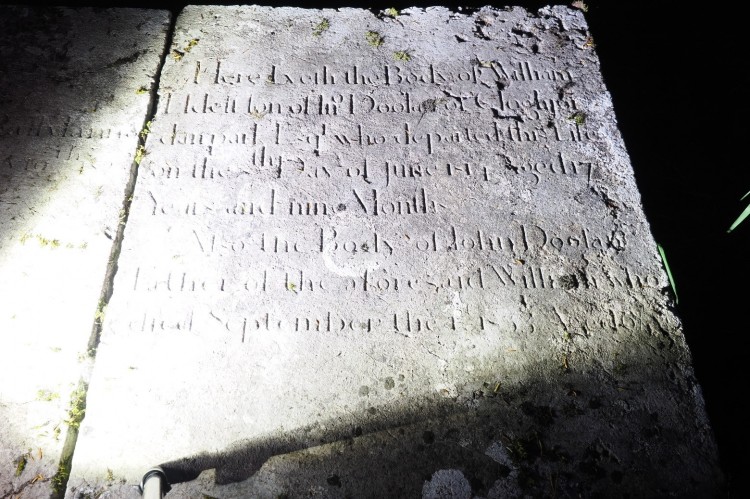 Here Lyeth the Body of William
Eldest son of Jnº Doolan of
Esqʳ who departed this Life
on the 8th Day of June Aged 17
Years and nine Months
Also the Body of John Doolan
Father of the aforesaid William who
died September the